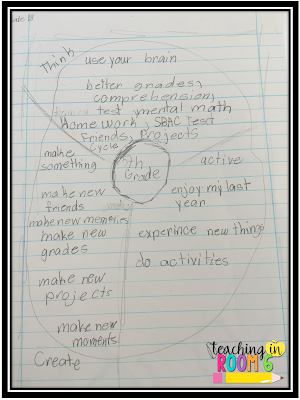 Think
use your brain
better grades,
comprehension,
test, mental math
Home work, SBAC Test
Friends, Projects
Cycle
5th
Grade
make
something
make new
friends
make new memories
make new
grades
make new
projects
make new
moments
Create
active
enjoy my last
year
experince new things
do activities
teaching in
ROOM 6